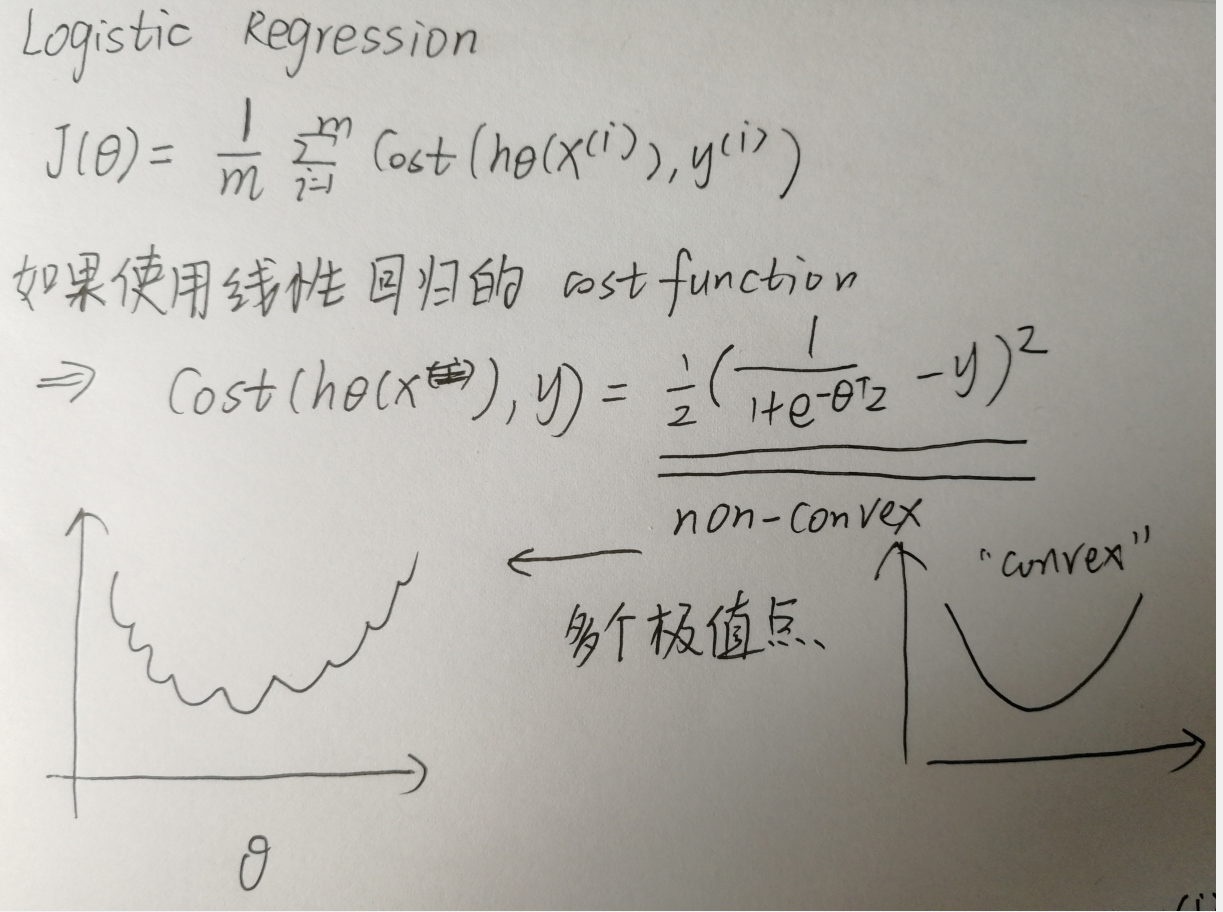 Logistic Regression
J(θ) = 1/m Σ_{i=1}^{m} Cost(hθ(x^(i)), y^(i))
如果使用线性回归的 cost function
⇒ Cost(hθ(x), y) = 1/2 (1/(1+e^{-θ^T z}) - y)^2
non-convex
"convex"
多个极值点
θ
(i)